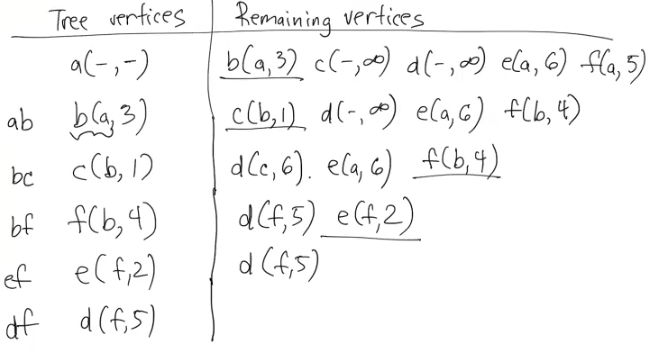 Tree vertices Remaining vertices
a(-,-) b(a,3) c(-,∞) d(-,∞) e(a,6) f(a,5)
ab b(a,3) c(b,1) d(-,∞) e(a,6) f(b,4)
bc c(b,1) d(c,6). e(a,6) f(b,4)
bf f(b,4) d(f,5) e(f,2)
ef e(f,2) d(f,5)
df d(f,5)